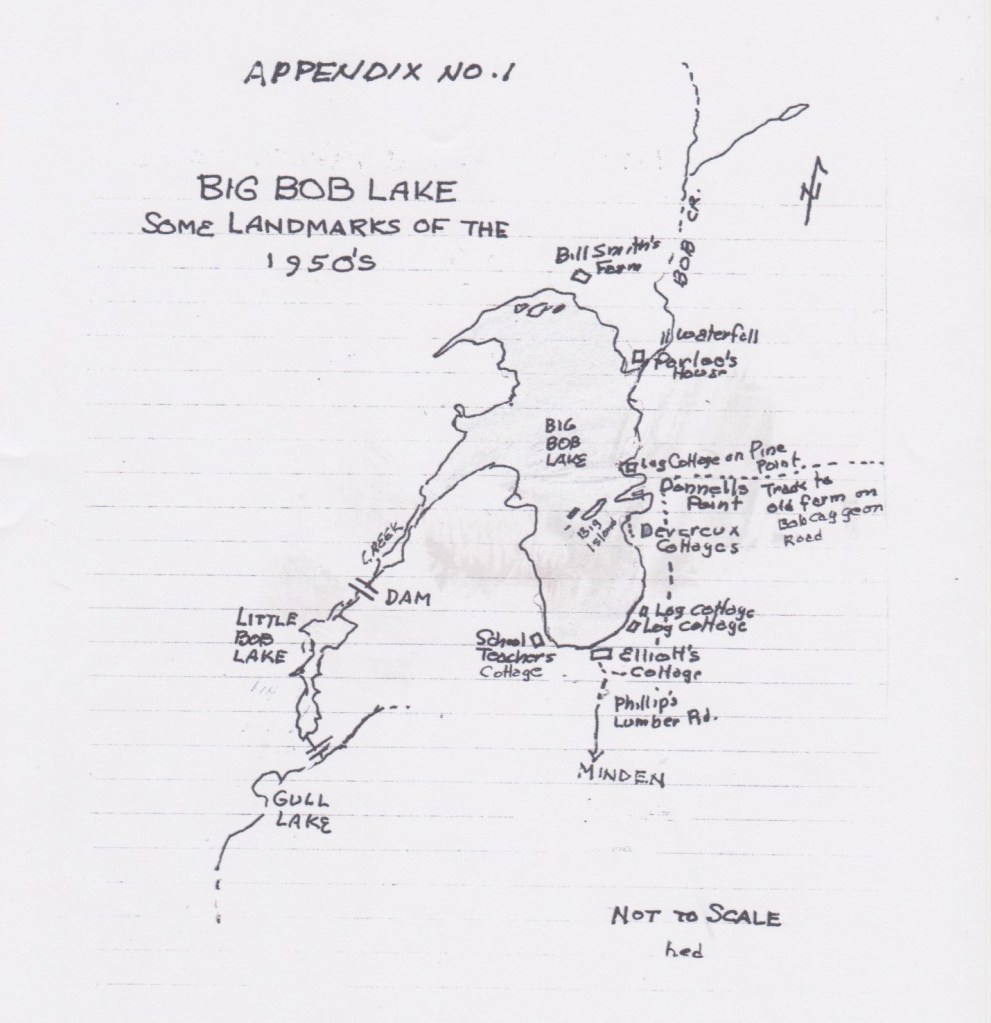 APPENDIX NO. 1
BIG BOB LAKE
SOME LANDMARKS OF THE
1950'S
BOB CR.
N
Bill Smith's
Farm
Waterfall
House
BIG
BOB
LAKE
Log Cottage on Pine
Point
Donnells
Point
Track to
old farm on
Bobcaygeon
Road
Big
Island
Devereux
Cottages
CREEK
DAM
LITTLE
BOB
LAKE
Log Cottage
Log Cottage
School
Teachers
Cottage
Elliott's
Cottage
Phillip's
Lumber Rd.
MINDEN
GULL
LAKE
NOT TO SCALE
hed